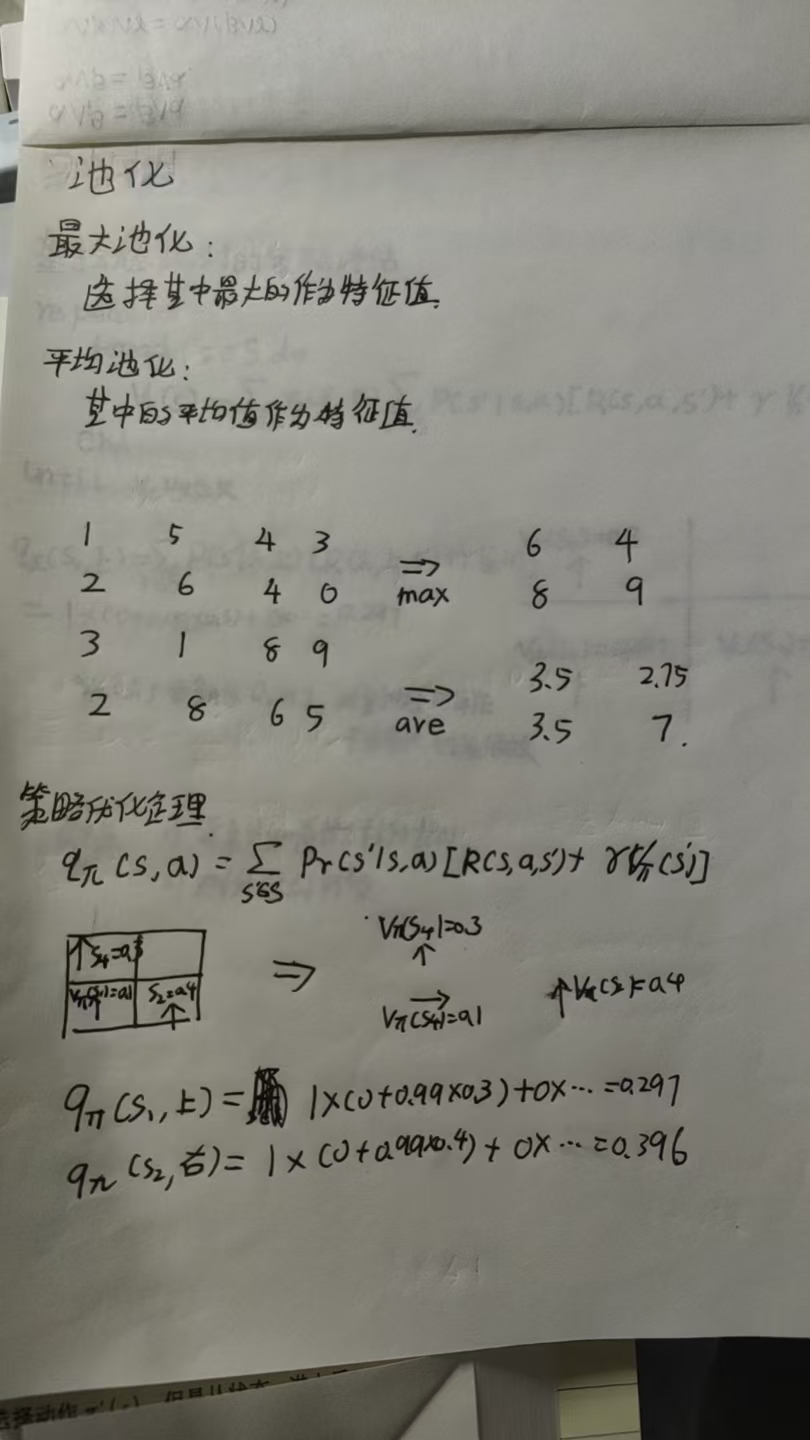 池化
最大池化：
选择其中最大的作为特征值.
平均池化：
其中的平均值作为特征值.
1 5 4 3 ⇒ 6 4
2 6 4 0 max 8 9
3 1 8 9
2 8 6 5 ⇒ 3.5 2.75
ave 3.5 7.
策略优化定理.
qπ(s,a) = Σ s'∈S Pr(s'|s,a)[R(s,a,s')+ γVπ(s')]
↑S4=0.3
Vπ(S1)=0.1 S2=0.4
↑ ↑
⇒
Vπ(S4)=0.3
↑
→ ↑Vπ(S2)=0.4
Vπ(S1)=0.1
qπ(S1,上)= 1×(0+0.99×0.3)+0×⋯=0.297
qπ(S2,右)= 1×(0+0.99×0.4)+0×⋯=0.396